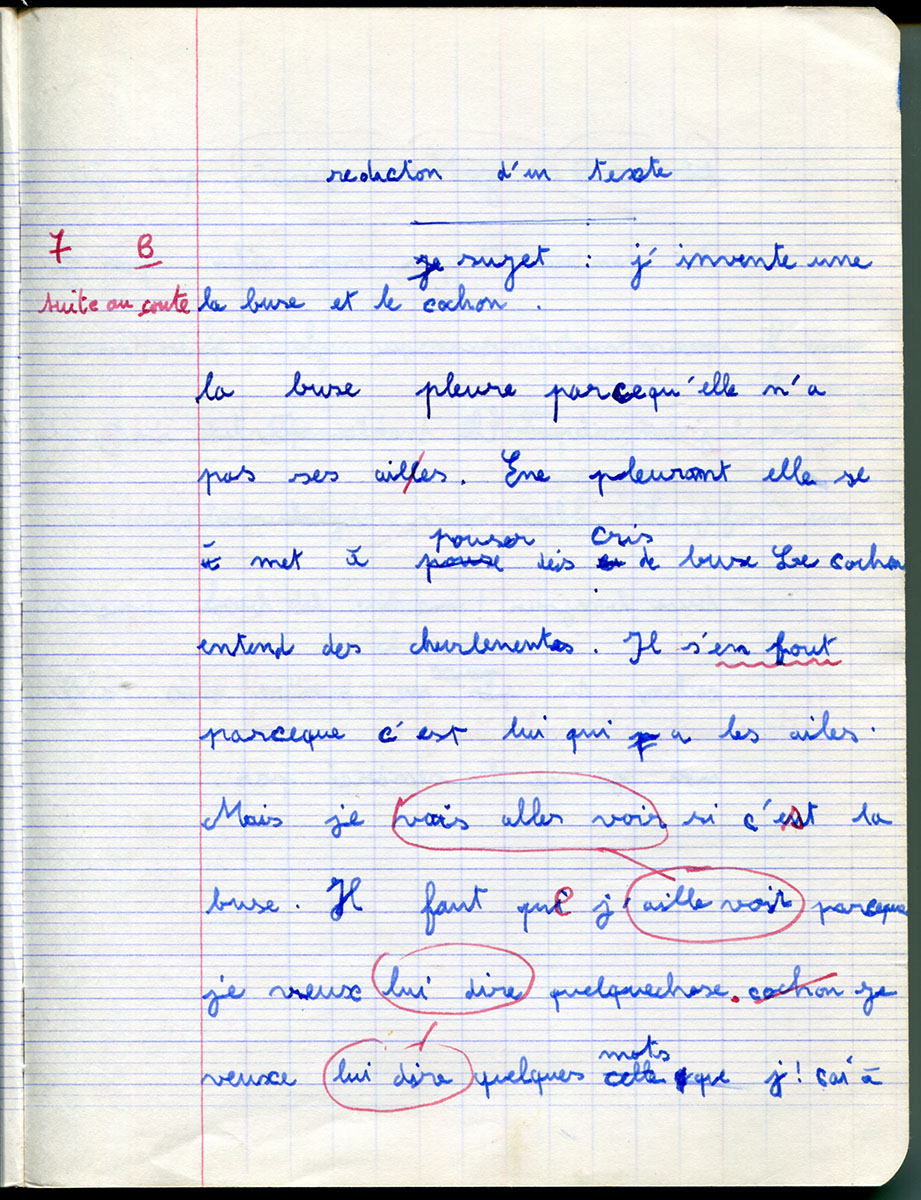 redaction d'un texte
7 B
je sujet : j'invente une
suite au conte la buse et le cochon .
la buse pleure parcequ'elle n'a
pas ses ailles . Ene pleuront elle se
pouser cris
met à pouse des de buse Le cochon
entend des churlenentes . Il s'en fout
parceque c'est lui qui a les ailes .
Mais je vais aller voir si c'est la
buse . Il faut que j'aille voir parceque
je veux lui dire quelquechose . cochon je
mots
veuxe lui dire quelques celle que j'! sai à